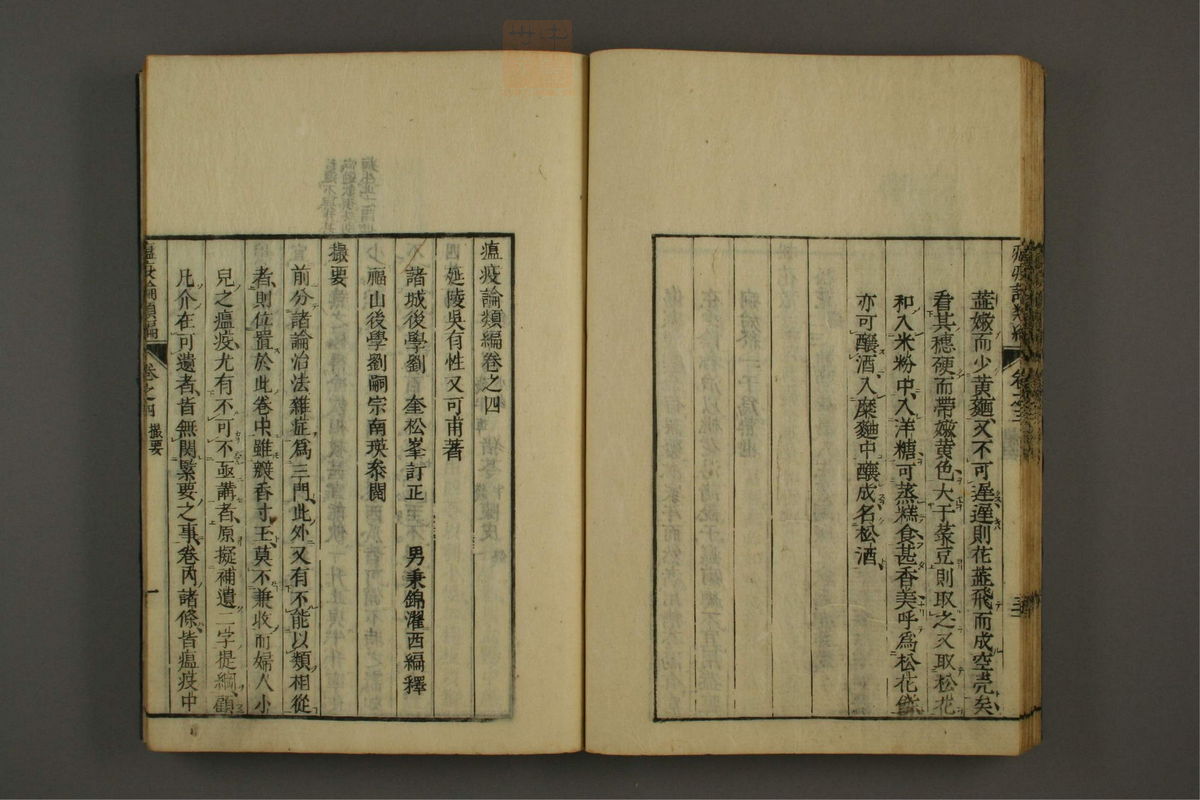 瘟疫論類編 卷之三
蕋嫩而少黄麵又不可遅遅則花蕋飛而成空壳矣
看其穗硬而帶嫩黄色大于菉豆則取之又取松花
和入米粉中入洋糖可蒸糕食甚香美呼爲松花
亦可釀酒入糜麵中釀成名松酒
瘟疫論類編卷之四
延陵吳有性又可甫著
諸城後學劉 奎松峯訂正 男秉錦濯西編釋
福山後學劉嗣宗南瑛叅閲
撮要
前分諸論治法雜症爲三門此外又有不能以類相從
者則位置於此卷中雖瓣香寸玉莫不兼收而婦人小
兒之瘟疫尤有不可不亟講者原擬補遺二字提綱顧
凡介在可遺者皆無関緊要之事卷内諸條皆瘟疫中
瘟疫論類編 卷之四 撮要 一